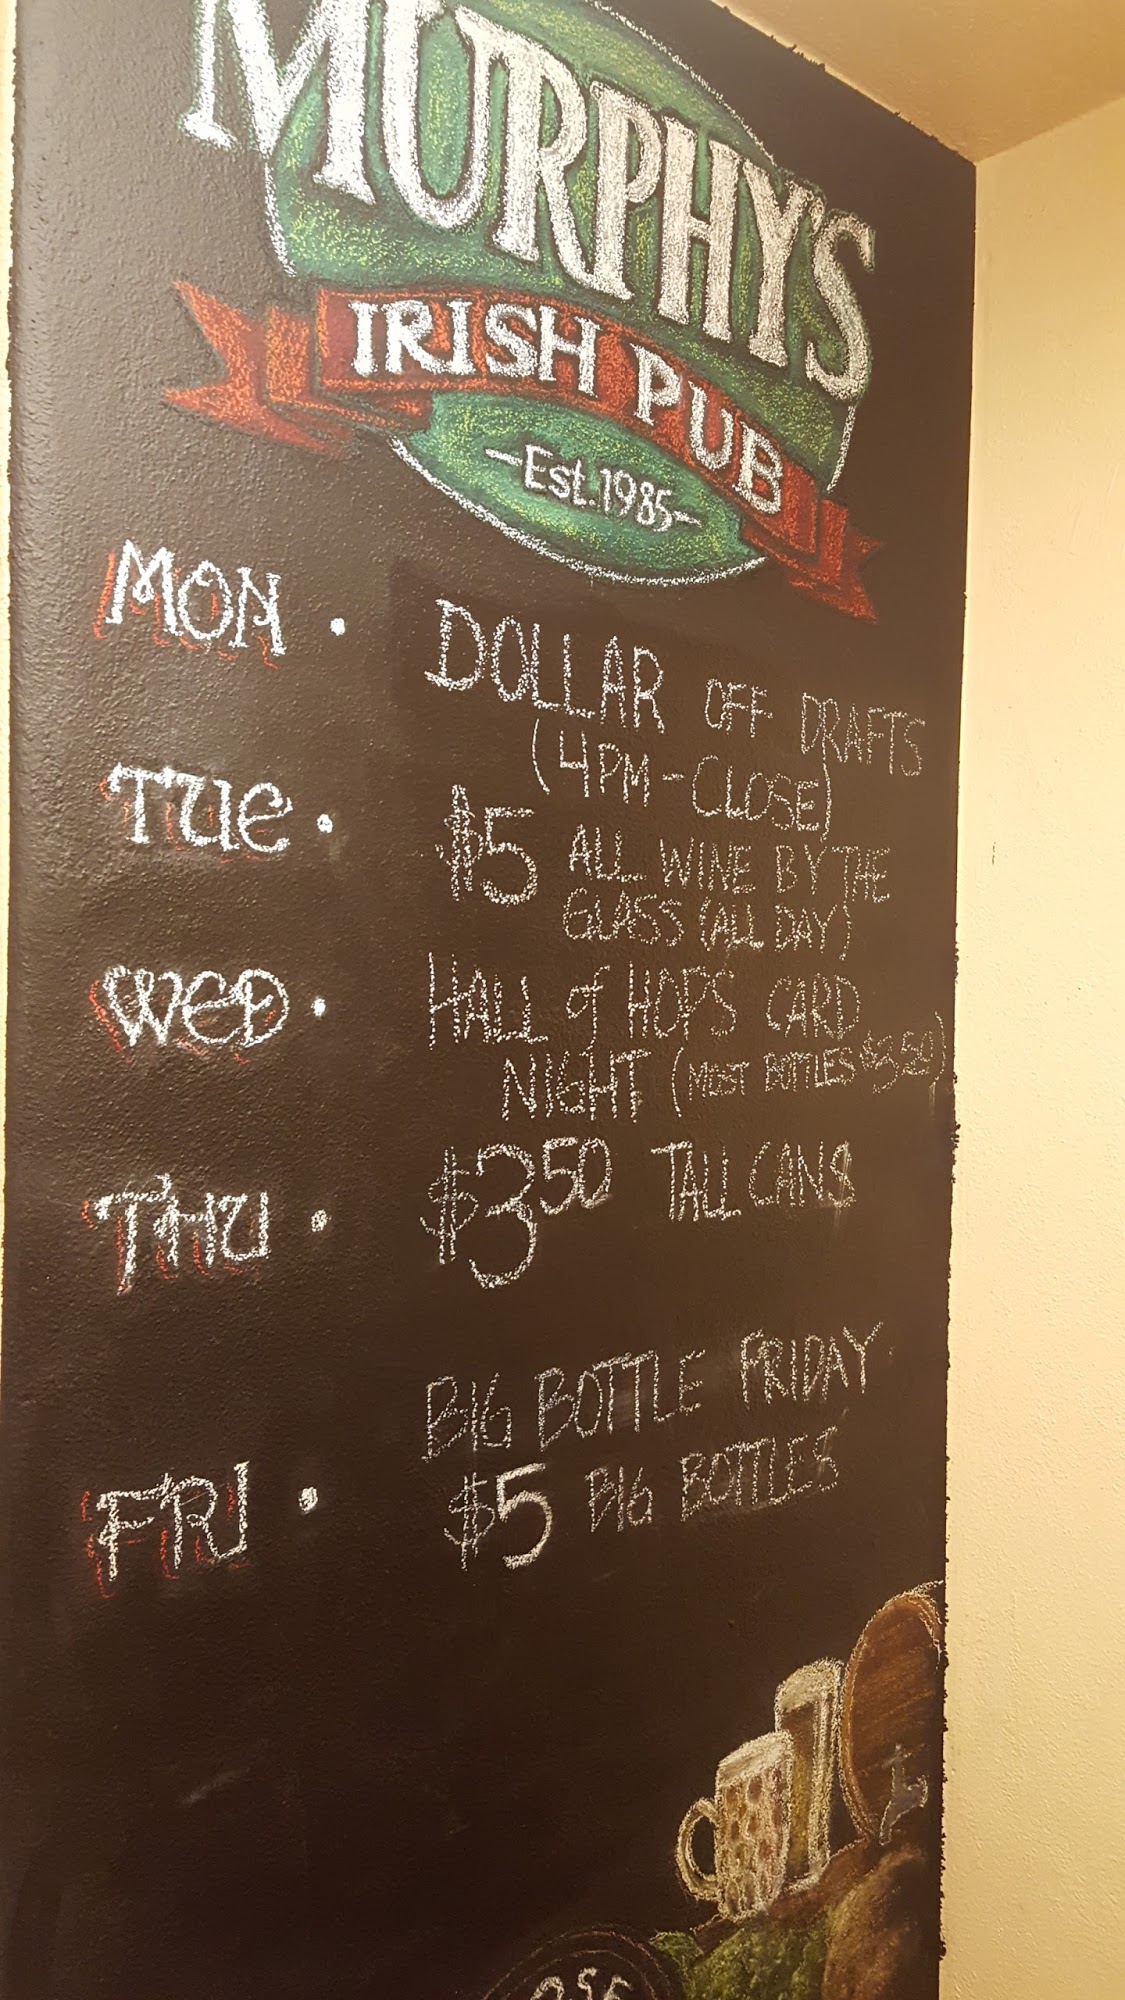 MURPHY'S
IRISH PUB
-Est. 1985-
MON • DOLLAR OFF DRAFTS
(4PM-CLOSE)
TUE • $5 ALL WINE BY THE
GLASS (ALL DAY)
WED • HALL of HOPS CARD
NIGHT (MOST BOTTLES $3.50)
THU • $3.50 TALL CANS
BIG BOTTLE FRIDAY
FRI • $5 BIG BOTTLES